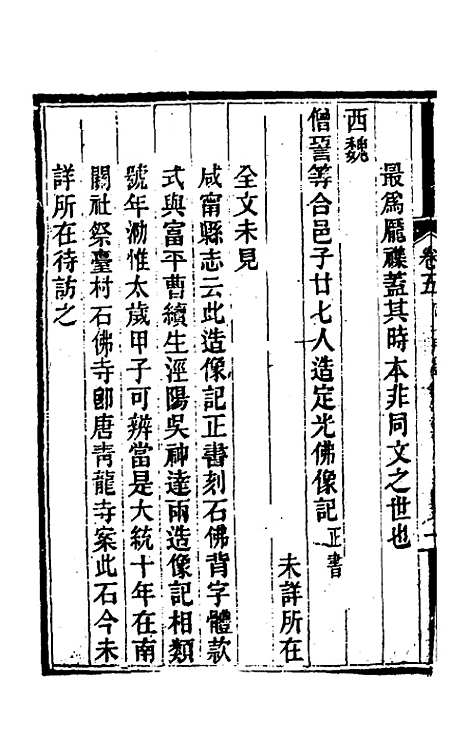 最爲厖襍蓋其時本非同文之世也
西魏
僧詧等合邑子廿七人造定光佛像記正書
未詳所在
全文未見
咸甯縣志云此造像記正書刻石佛背字體款
式與富平曹續生涇陽吳神達兩造像記相類
號年泐惟太歲甲子可辨當是大統十年在南
關社祭臺村石佛寺卽唐靑龍寺案此石今未
詳所在待訪之
卷五